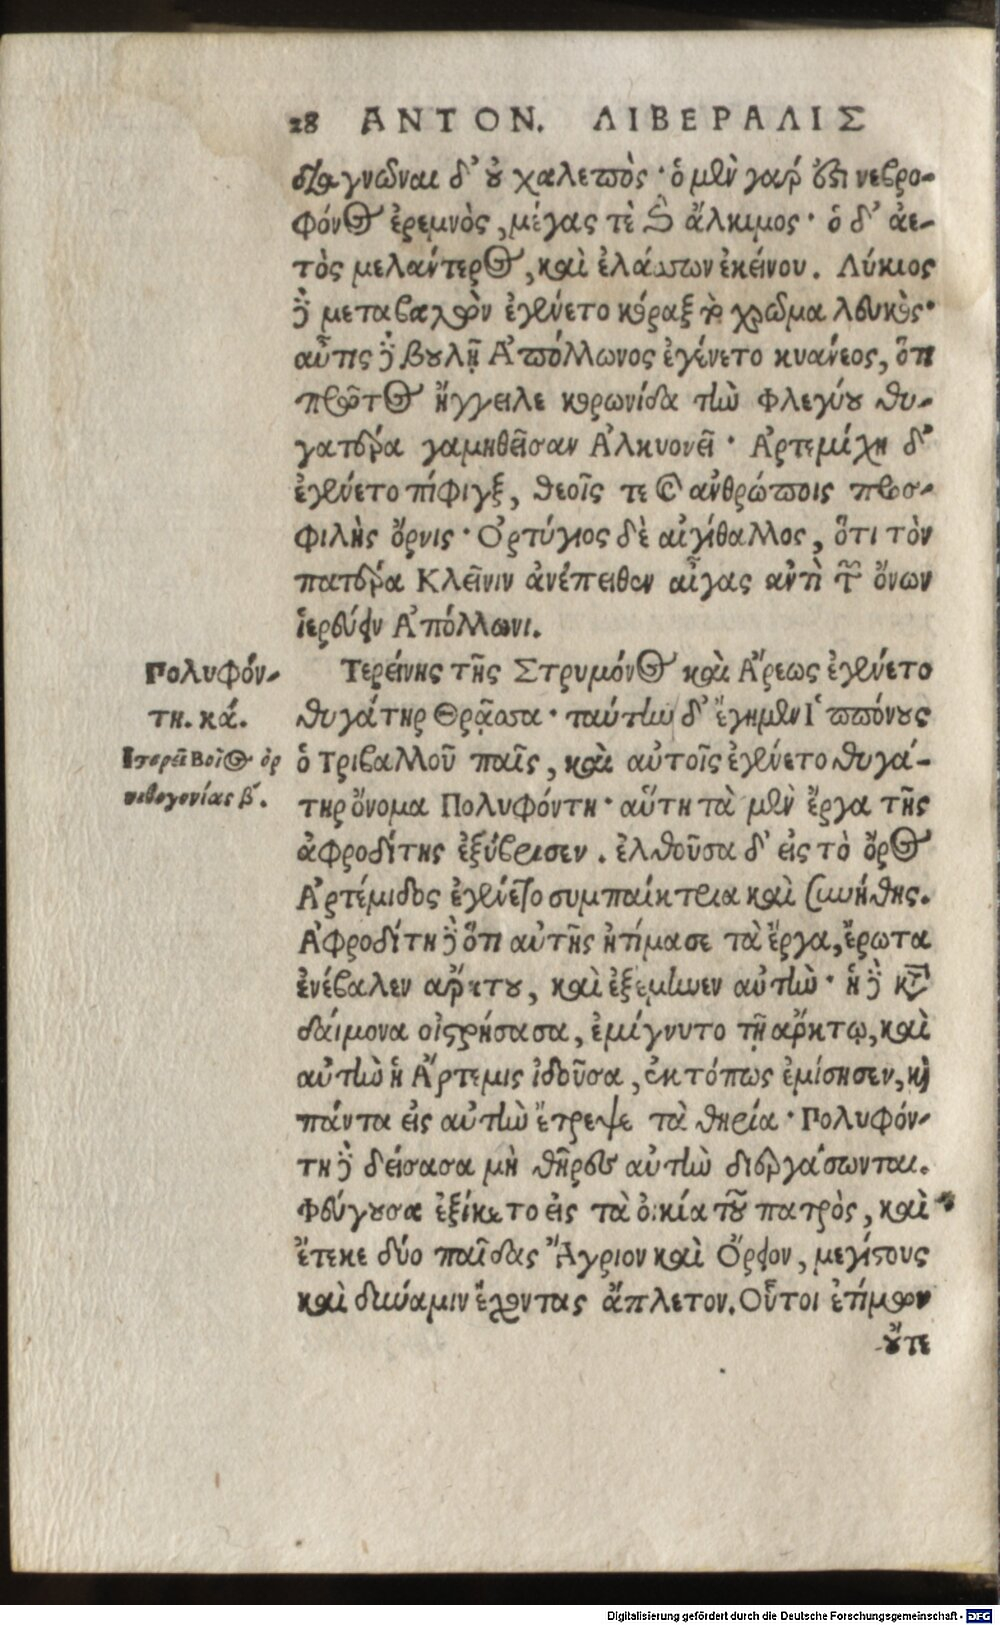 28 ΑΝΤΟΝ. ΛΙΒΕΡΑΛΙΣ
διαγνῶναι δ' οὐ χαλεπὸς· ὁ μὲν γάρ ὅτι νεβρο-
φόνος ἐρεμνὸς, μέγας τὲ καὶ ἄλκιμος· ὁ δ' ἀε-
τὸς μελάντερος, καὶ ἐλάσσων ἐκείνου. Λύκιος
δὲ μεταβαλὼν ἐγένετο κόραξ τὸ χρῶμα λευκὸς·
αὖτις δὲ βουλῇ Ἀπόλλωνος ἐγένετο κυάνεος, ὅτι
πρῶτος ἤγγειλε κορωνίδα τὴν Φλεγύου θυ-
γατέρα γαμηθεῖσαν Ἀλκυονεῖ· Ἀρτεμίχη δ'
ἐγένετο πίφιγξ, θεοῖς τε καὶ ἀνθρώποις προσ-
φιλὴς ὄρνις· Ὀρτύγιος δὲ αἰγίθαλλος, ὅτι τὸν
πατέρα Κλεῖνιν ἀνέπειθεν αἶγας ἀντὶ τῶν ὄνων
ἱερεύειν Ἀπόλλωνι.
Πολυφόν-
τη. κά.
Ἱστορεῖ Βοῖος ὀρ
νιθογονίας β΄.
Τερείνης τῆς Στρυμόνος καὶ Ἄρεως ἐγένετο
θυγάτηρ Θρᾷσσα· ταύτην δ' ἔγημεν Ἱππόνους
ὁ Τριβαλλοῦ παῖς, καὶ αὐτοῖς ἐγένετο θυγά-
τηρ ὄνομα Πολυφόντη· αὕτη τὰ μὲν ἔργα τῆς
ἀφροδίτης ἐξύβρισεν. ἐλθοῦσα δ' εἰς τὸ ὄρος
Ἀρτέμιδος ἐγένετο συμπαίκτρια καὶ συνήθης.
Ἀφροδίτη δὲ ὅτι αὐτῆς ἠτίμασε τὰ ἔργα, ἔρωτα
ἐνέβαλεν ἄρκτου, καὶ ἐξέμηνεν αὐτὴν· ἡ δὲ κατὰ
δαίμονα οἰστρήσασα, ἐμίγνυτο τῇ ἄρκτῳ, καὶ
αὐτὴν ἡ Ἄρτεμις ἰδοῦσα, ἐκτόπως ἐμίσησεν, καὶ
πάντα εἰς αὐτὴν ἔτρεψε τὰ θηρία· Πολυφόν-
τη δὲ δείσασα μὴ θῆρες αὐτὴν διεργάσωνται.
Φεύγουσα ἐξίκετο εἰς τὰ οἰκία τοῦ πατρὸς, καὶ
ἔτεκε δύο παῖδας Ἄγριον καὶ Ὄρειον, μεγίστους
καὶ δύναμιν ἔχοντας ἄπλετον. Οὗτοι ἐτίμων
οὔτε
Digitalisierung gefördert durch die Deutsche Forschungsgemeinschaft - DFG